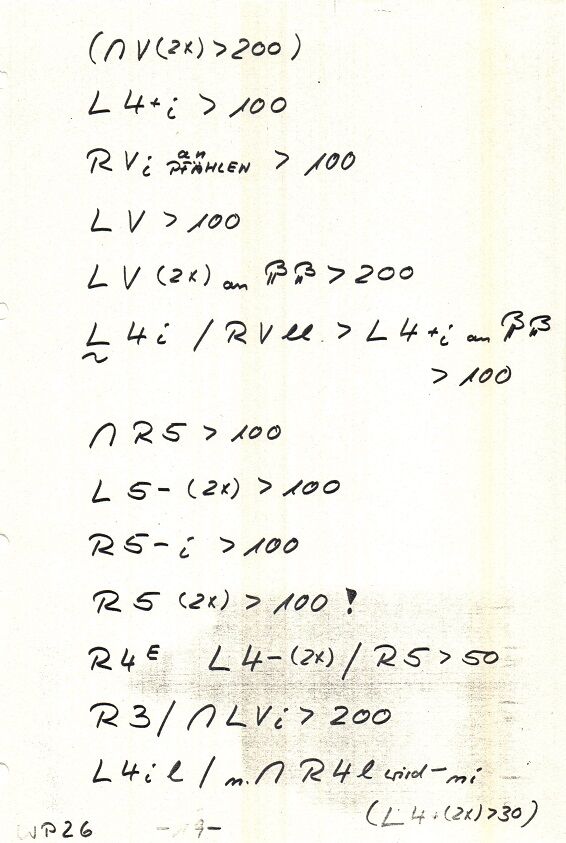 (∩ V (2x) > 200)
L 4+i > 100
R V i an PFÄHLEN > 100
L V > 100
L V (2x) an > 200
L 4 i / R V ll. > L 4+i an
> 100
∩ R 5 > 100
L 5- (2x) > 100
R 5-i > 100
R 5 (2x) > 100 !
R4 E L 4-(2x) / R5 > 50
R 3 / ∩ L V i > 200
L 4 i l / n. ∩ R 4 l wird - ni
(L 4. (2x) > 30)
WP26 -19-